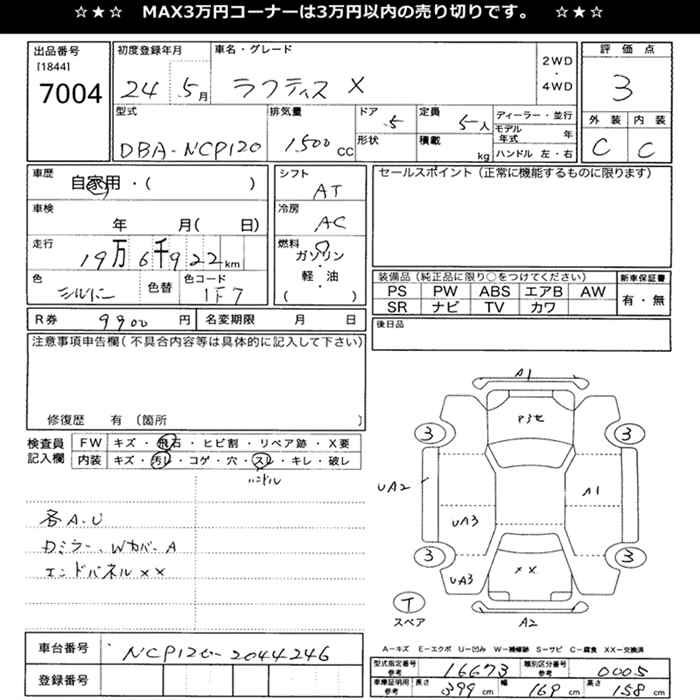 ☆★☆ MAX3万円コーナーは3万円以内の売り切りです。 ☆★☆
出品番号
[1844]
7004
初度登録年月
24 5月
車名・グレード
ラクティス X
2WD
・
4WD
評価点
3
外装 内装
C C
型式
DBA-NCP120
排気量
1,500 CC
ドア 5
形状
定員 5人
積載 kg
ディーラー・並行
モデル年式 年
ハンドル 左・右
車歴
自家用・( )
車検
年 月( 日)
走行
19万6千922km
色
シルバー
色替
色コード
1F7
シフト
AT
冷房
AC
燃料
ガソリン
軽・油
( )
セールスポイント(正常に機能するものに限ります)
装備品(純正品に限り○をつけてください)
PS PW ABS エアB AW
SR ナビ TV カワ
新車保証書
有・無
R券 9900 円
名変期限 月 日
後日品
注意事項申告欄(不具合内容等は具体的に記入して下さい)
修復歴 有 〔箇所 〕
検査員記入欄
FW キズ・飛石・ヒビ割・リペア跡・X要
内装 キズ・汚レ・コゲ・穴・スレ・キレ・破レ
ハンドル
各A.U
Dミラー、Wカバー A
エンドパネル××
A1
3 3
UA2
A1
UA3
3 3
UA3
××
T
スペア
A2
A-キズ E-エクボ U-凹み W-補修跡 S-サビ C-腐食 XX-交換済
車台番号 NCP120-2044246
登録番号
型式指定番号 参考 16673
類別区分番号 参考 0005
車庫証明用 参考 長さ 399 cm 幅 169 cm 高さ 158 cm